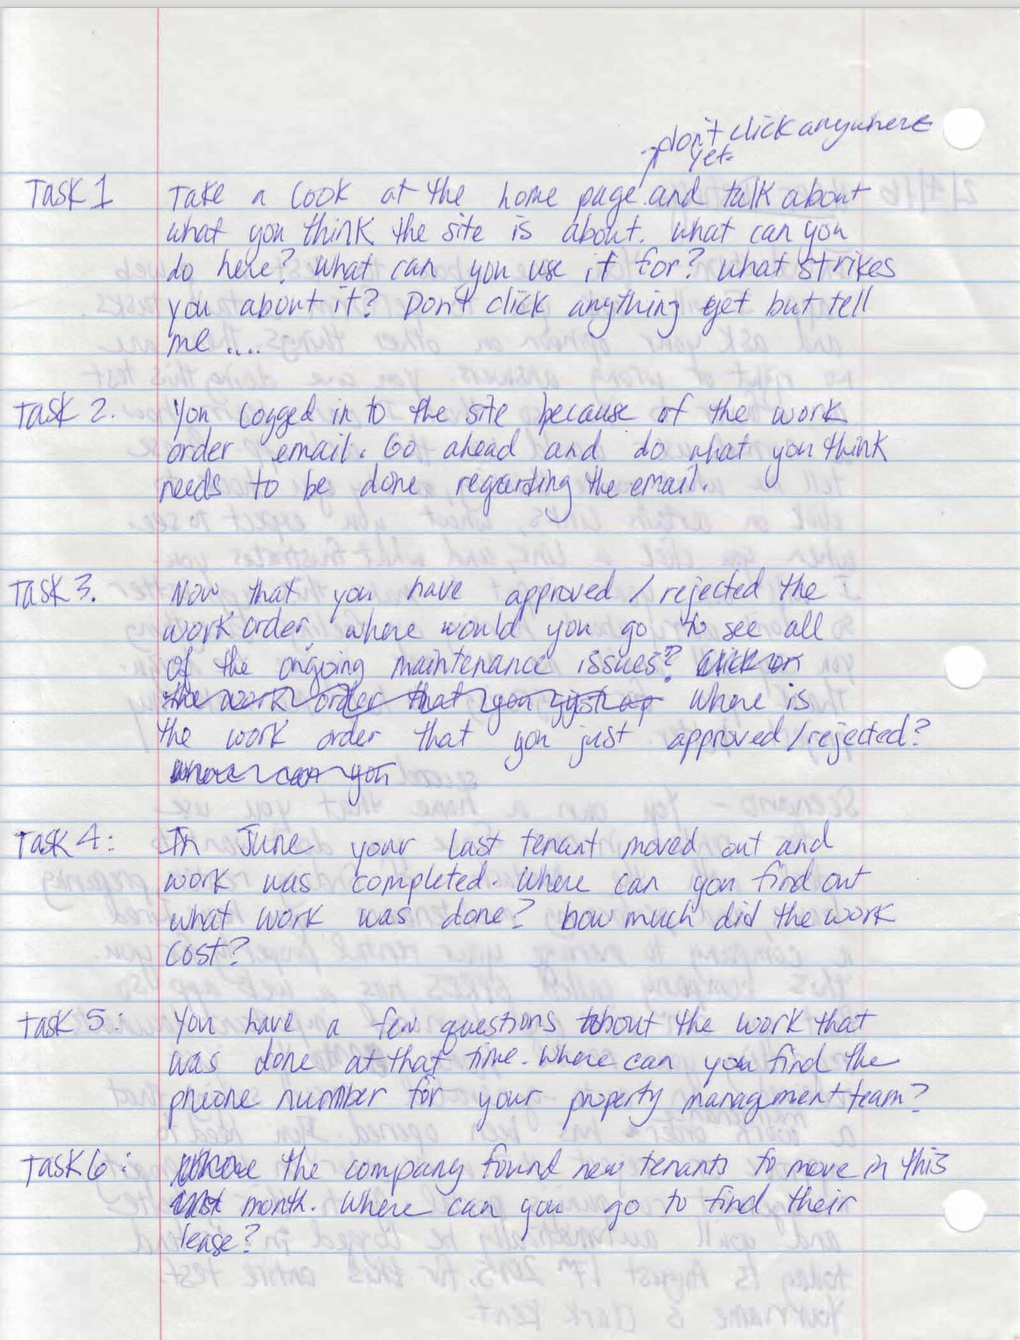 don't click anywhere
yet.
Task 1 Take a look at the home page and talk about
what you think the site is about. what can you
do here? what can you use it for? what strikes
you about it? Don't click anything yet but tell
me ....
Task 2. You logged in to the site because of the work
order email. Go ahead and do what you think
needs to be done regarding the email.
Task 3. Now that you have approved / rejected the
work order, where would you go to see all
of the ongoing maintenance issues? click on
the work order that you just where is
the work order that you just approved / rejected?
where can you
Task 4: In June your last tenant moved out and
work was completed. Where can you find out
what work was done? how much did the work
cost?
Task 5: You have a few questions about the work that
was done at that time. Where can you find the
phone number for your property management team?
Task 6: the company found new tenants to move in this
month. Where can you go to find their
lease?